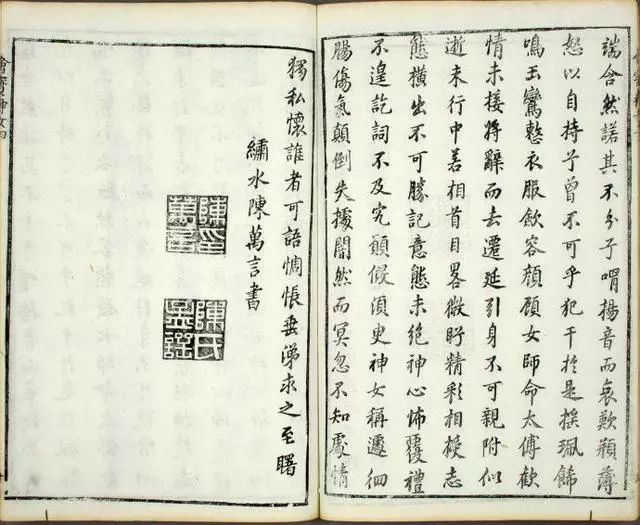 端合然諾其不分兮喟揚音而哀歎頩薄
怒以自持兮曾不可乎犯干於是搖珮飾
鳴玉鸞整衣服歛容顔顧女師命太傅歡
情未接將辭而去遷延引身不可親附似
逝未行中若相首目畧微盻精彩相授志
態横出不可勝記意態未絶神心怖覆禮
不遑訖詞不及究願假須臾神女稱遽徊
腸傷氣顛倒失據闇然而冥忽不知處情
獨私懷誰者可語惆悵垂涕求之至曙
繡水陳萬言書
陳印
萬言
陳氏